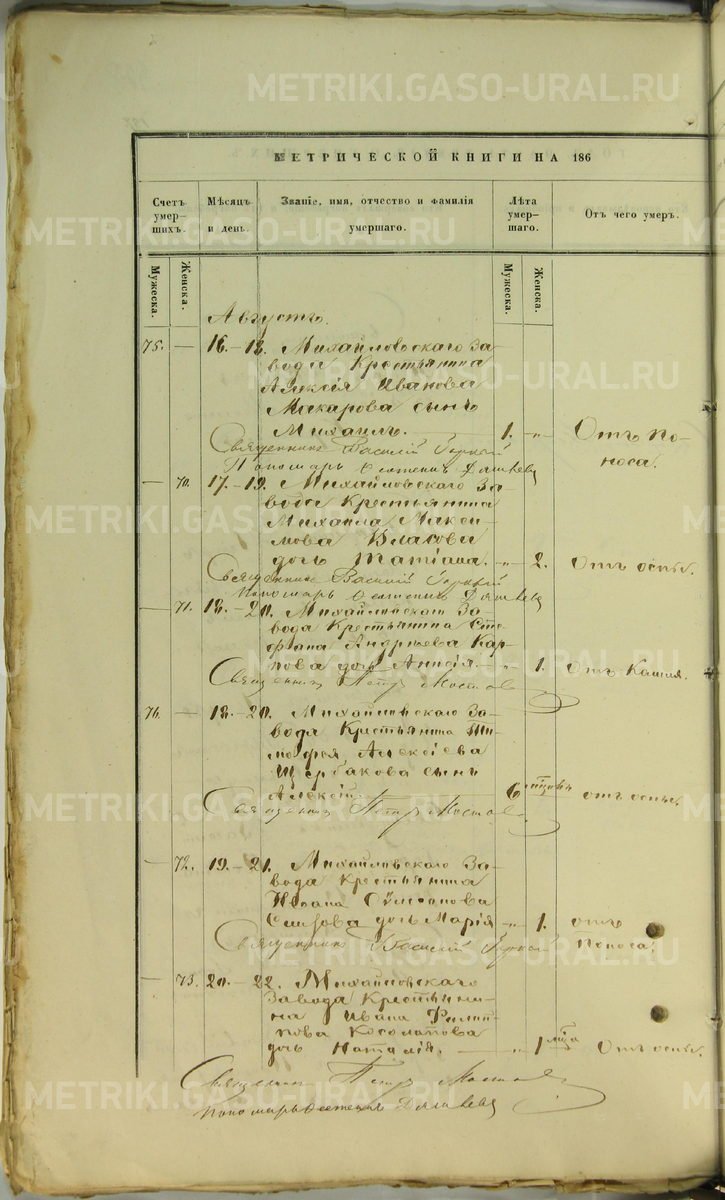 METRIKI.GASO-URAL.RU
МЕТРИЧЕСКОЙ КНИГИ НА 186
Счетъ умер-шихъ.
Мѣсяцъ и день.
Званіе, имя, отчество и фамилія умершаго.
Лѣта умер-шаго.
Отъ чего умеръ.
Мужеска.
Женска.
Мужеска.
Женска.
Августъ.
75. — 16.–18. Михайловскаго За-
вода Крестьянина
Алексія Иванова
Макарова сынъ
Михаилъ. — 1. „ Отъ по-
носа.
Священникъ Василій
Пономарь
— 70. 17.–19. Михайловскаго За-
вода Крестьянина
Михаила Макси-
мова Власова
дочь Татіана. „ 2. Отъ оспы.
Священникъ Василій
Пономарь
— 71. 18.–20. Михайловскаго За-
вода Крестьянина Сте-
фана Андреева Кар-
пова дочь Анисія. — „ 1. Отъ Кашля.
Священникъ Петръ
76. — 18.–20. Михайловскаго За-
вода Крестьянина Ти-
мофея Алексіева
Щербакова сынъ
Алексій 6 отъ оспы.
Священникъ Петръ
— 72. 19.–21. Михайловскаго За-
вода Крестьянина
Іоана
дочь Марія „ 1. отъ
Поноса.
Священникъ Василій
— 73. 20.–22. Михайловскаго
Завода Крестьяни-
на Ивана Филип-
пова Косолапова
дочь Наталія. — „ 1 Отъ оспы.
Священникъ Петръ
Пономарь